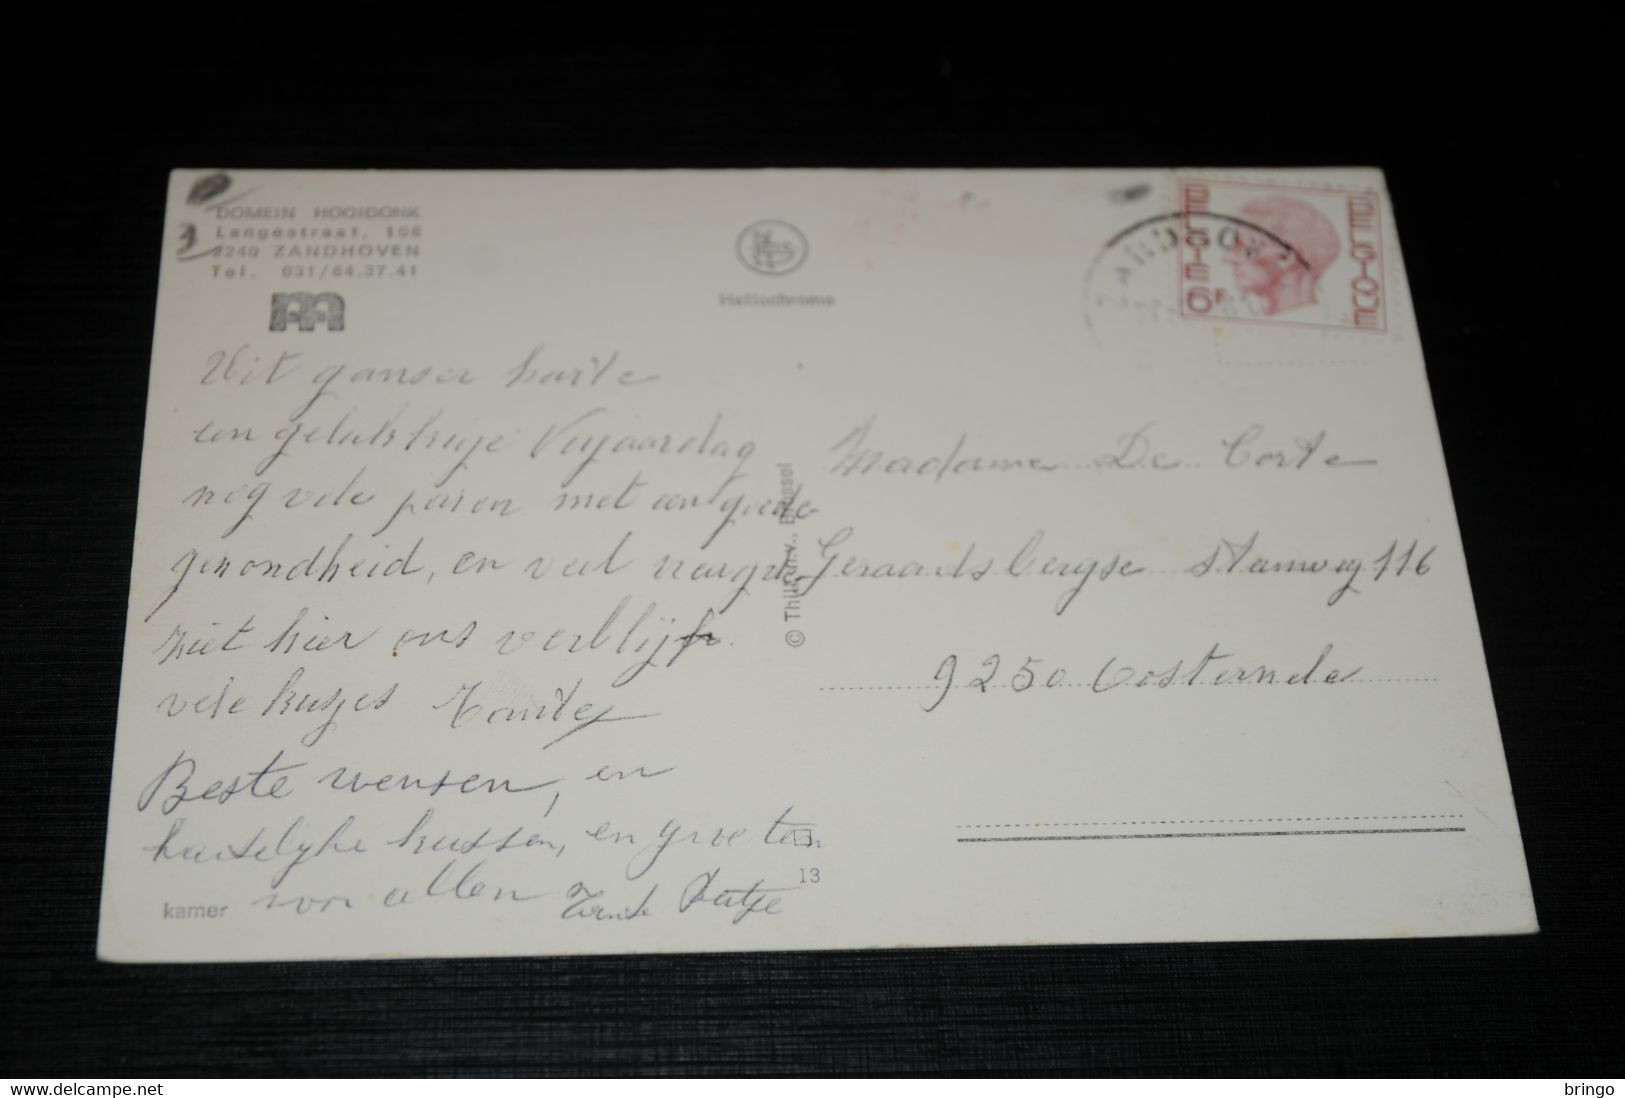 DOMEIN HOOIDONK
Langestraat, 106
2240 ZANDHOVEN
Tel. 031/64.37.41
Heliochrome
BELGIE 6F BELGIQUE
Uit ganser harte
een gelukkige Verjaardag
nog vele jaren met een goede
gezondheid, en veel
hier ons verblijf.
vele kusjes Tante
Beste wensen, en
hartelijke kussen, en groeten
voor allen Tante
© Thill n.v., Brussel
Madame De Corte
Geraardsbergse steenweg 116
9250 Oosterzele
13
kamer
www.delcampe.net
bringo